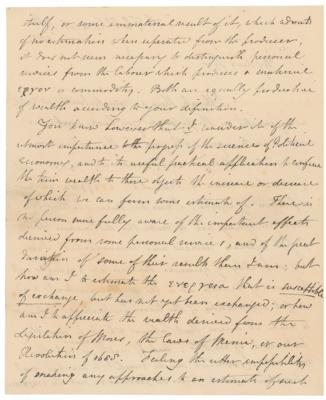 itself, or some immaterial result of it, which admits
of no estimation when separated from the producer,
it does not seem necessary to distinguish personal
services from the labour which produces a material
εργον or commodity. Both are equally productive
of wealth according to your definition.
You know however that I consider it of the
utmost importance to the progress of the science of Political
Economy, and to its useful practical application to confine
the term wealth to those objects the increase or decrease
of which we can form some estimate of. There is
no person more fully aware of the important effects
derived from some personal services, and of the great
duration of some of their results than I am; but
how am I to estimate the ενεργεια that is susceptible
of exchange, but has not yet been exchanged; or how
am I to appreciate the wealth derived from the
legislation of Moses, the Laws of Minos, or our
Revolution of 1688. Feeling the utter impossibility
of making any approaches to an estimate of such